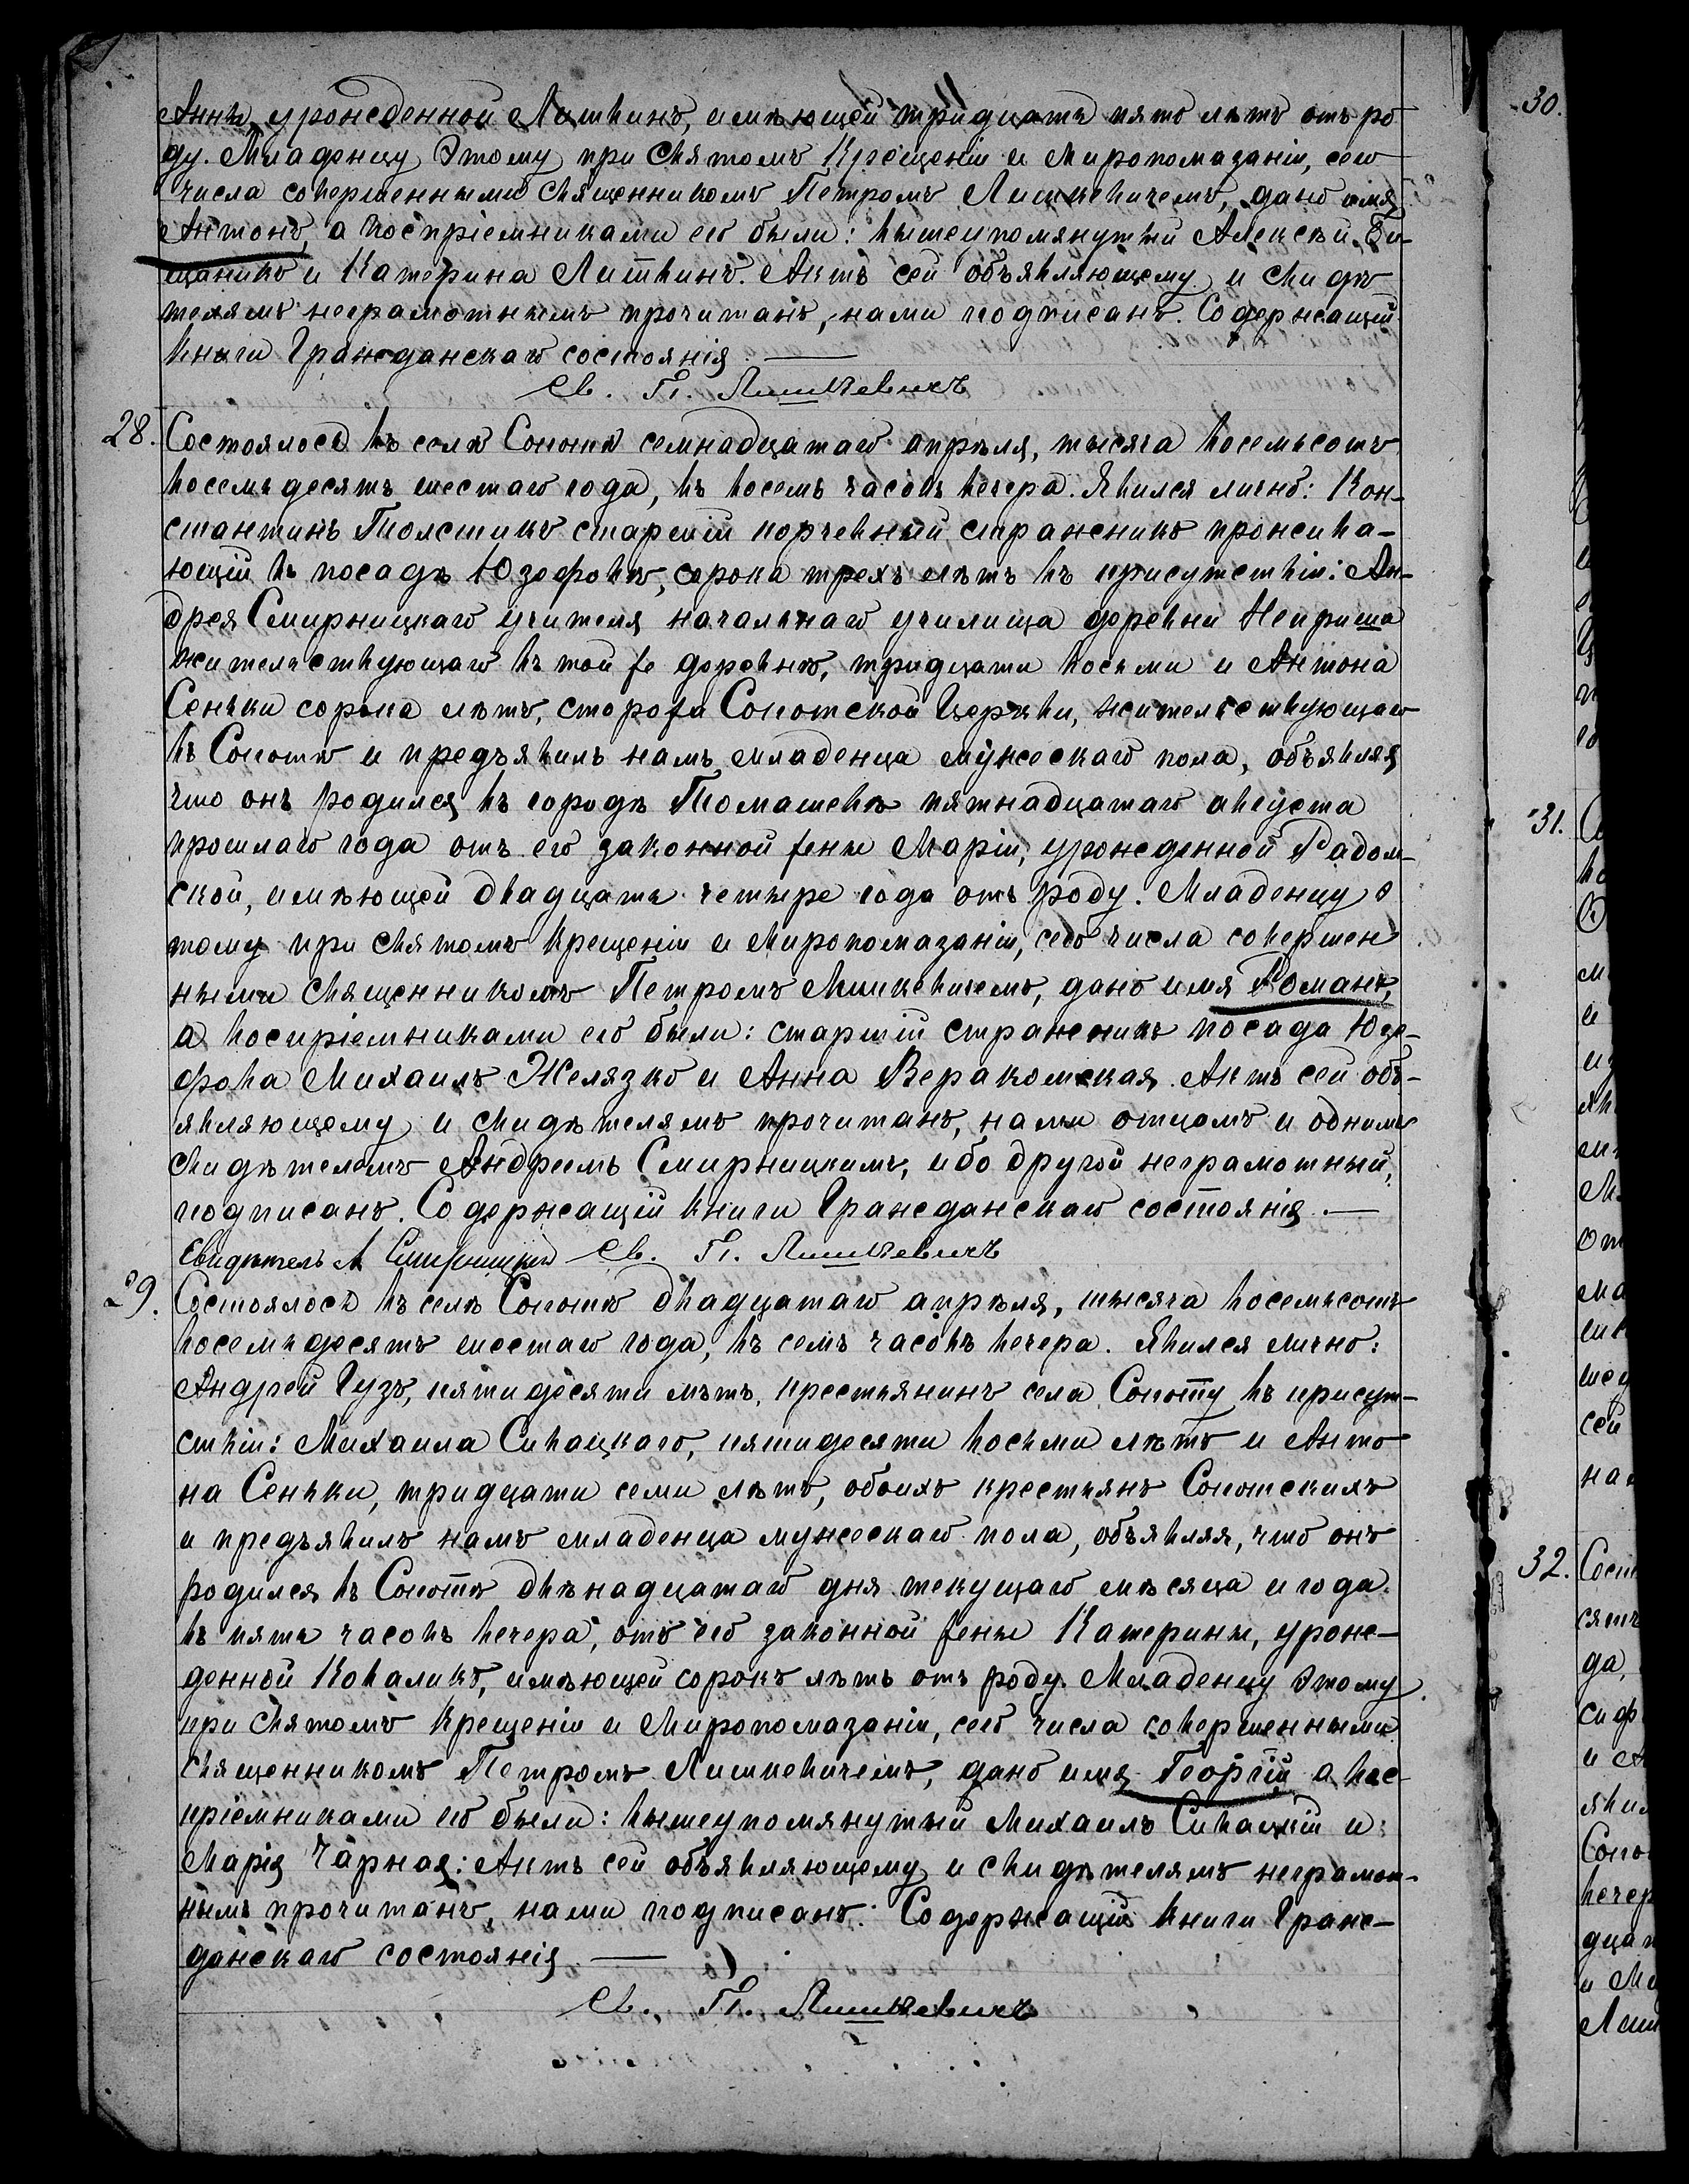 Анны, урожденной Литвинъ, имѣющей тридцать пять лѣтъ отъ ро
ду. Младенцу Этому при Святомъ Крещеніи и Миропомазаніи, сего
числа совершенными Священникомъ Петромъ Лишкевичемъ, дано имя
Антонъ, а воспріемниками его были: вышеупомянутый Алексѣй
и Катерина Литвинъ. Актъ сей объявляющему и свидѣ
телямъ неграмотнымъ прочитанъ, нами подписанъ. Содержащій
книги Гражданскаго состоянія. —
Св. П. Лишкевичъ
28. Состоялось въ селѣ Сопотѣ семнадцатаго апрѣля, тысяча восемьсотъ
восемьдесятъ шестаго года, въ восемь часовъ вечера. Явился лично: Кон-
стантинъ Толстикъ старшій корчевный стражникъ прожива-
ющій въ посадѣ Юзефовѣ, сорока трехъ лѣтъ въ присутствіи: Ан-
дрея Смирницкаго учителя начальнаго училища деревни Неприша
жительствующаго въ той же деревнѣ, тридцати восьми и Антона
Сеньки сорока лѣтъ, сторожа Сопотской Церкви, жительствующаго
въ Сопотѣ и предъявилъ намъ младенца мужескаго пола, объявляя
что онъ родился въ городѣ Томашевѣ пятнадцатаго августа
прошлаго года отъ его законной жены Маріи, урожденной Радом-
ской, имѣющей двадцать четыре года отъ роду. Младенцу э
тому при Святомъ Крещеніи и Миропомазаніи, сего числа совершен
ными Священникомъ Петромъ Лишкевичемъ, дано имя Романъ,
а воспріемниками его были: старшій стражникъ посада Юзе-
фова Михаилъ Желязко и Анна Актъ сей объ-
являющему и свидѣтелямъ прочитанъ, нами отцомъ и однимъ
свидѣтелемъ Андреемъ Смирницкимъ, ибо другой неграмотный,
подписанъ. Содержащій книги Гражданскаго состоянія. —
Свидѣтель А Смирницкій Св. П. Лишкевичъ
29. Состоялось въ селѣ Сопотѣ двадцатаго апрѣля, тысяча восемьсотъ
восемьдесятъ шестаго года, въ семь часовъ вечера. Явился лично:
Андрей Гузъ, пятидесяти лѣтъ, крестьянинъ села Сопоту въ присут-
ствіи: Михаила Сивацкаго, пятидесяти восьми лѣтъ и Анто
на Сеньки, тридцати семи лѣтъ, обоихъ крестьянъ Сопотскихъ
и предъявилъ намъ младенца мужескаго пола, объявляя, что онъ
родился въ Сопотѣ двѣнадцатаго дня текущаго мѣсяца и года
въ пять часовъ вечера, отъ его законной жены Катерины, урож-
денной Коваликъ, имѣющей сорокъ лѣтъ отъ роду. Младенцу Этому
при Святомъ Крещеніи и Миропомазаніи, сего числа совершенными
Священникомъ Петромъ Лишкевичемъ, дано имя Георгій а вос
пріемниками его были: вышеупомянутый Михаилъ Сивацкій и
Марія Чарная: Актъ сей объявляющему и свидѣтелямъ неграмот-
нымъ прочитанъ, нами подписанъ. Содержащій книги Граж-
данскаго состоянія. —
Св. П. Лишкевичъ
30.
31.
32.